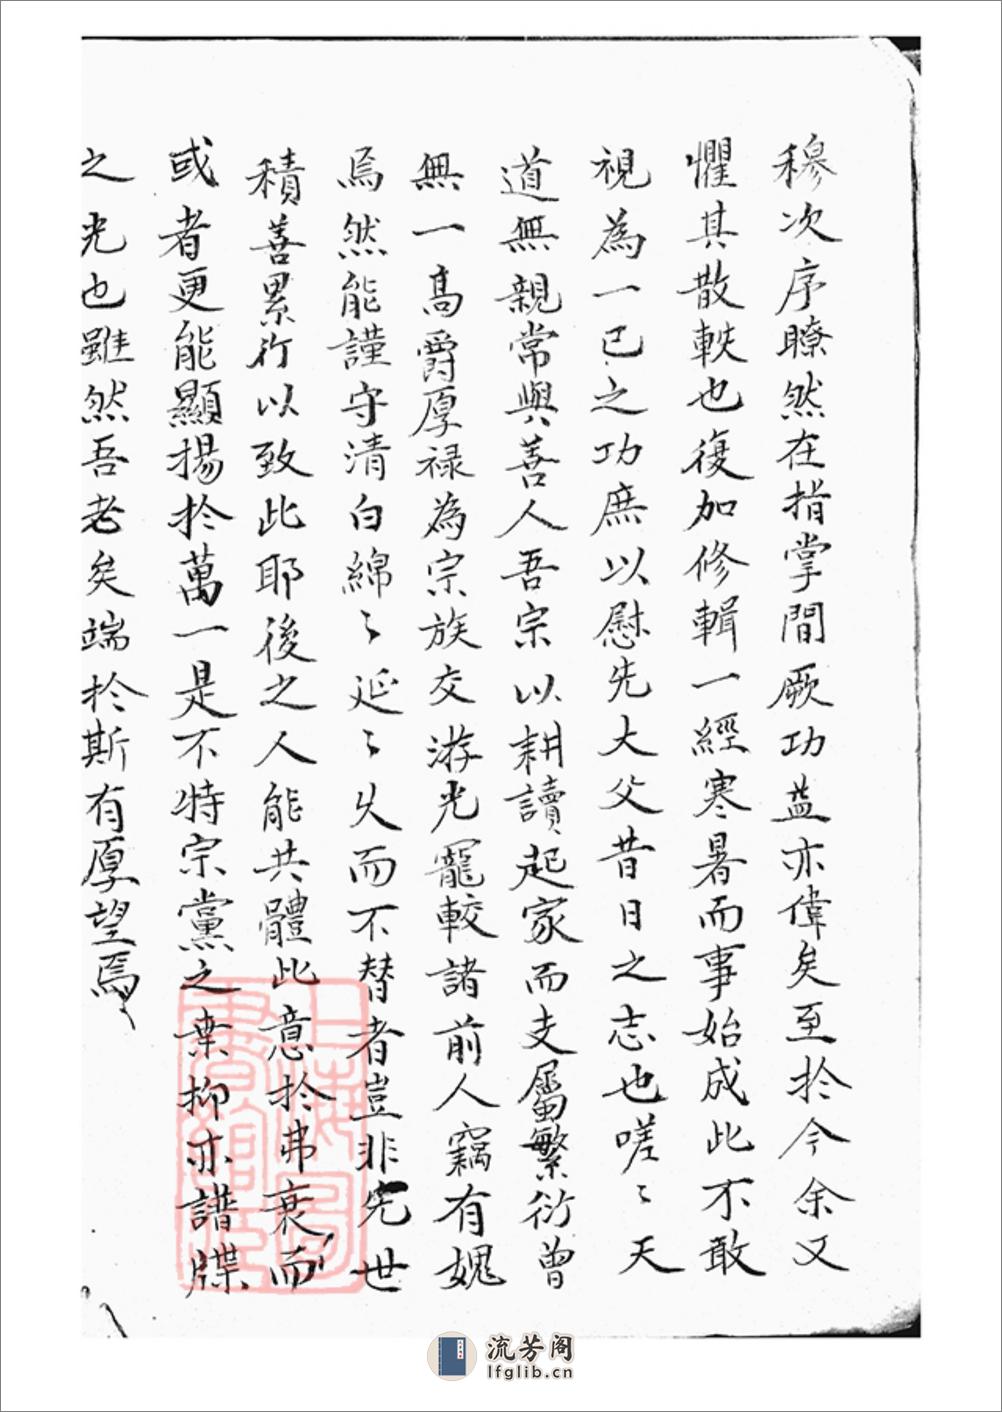 穆次序瞭然在指掌間厥功盖亦偉矣至扵今余又
懼其散軼也復加修輯一經寒暑而事始成此不敢
視為一已之功庶以慰先大父昔日之志也嗟〻天
道無親常與善人吾宗以耕讀起家而支屬繁衍曾
無一高爵厚禄為宗族交游光寵較諸前人竊有媿
焉然能謹守清白綿〻延〻乆而不替者豈非先世
積善累行以致此耶後之人能共體此意扵弗衰而
或者更能顯揚扵萬一是不特宗黨之榮抑亦譜牒
之光也雖然吾老矣端扵斯有厚望焉
上海圖書館藏
流芳阁
lfglib.cn